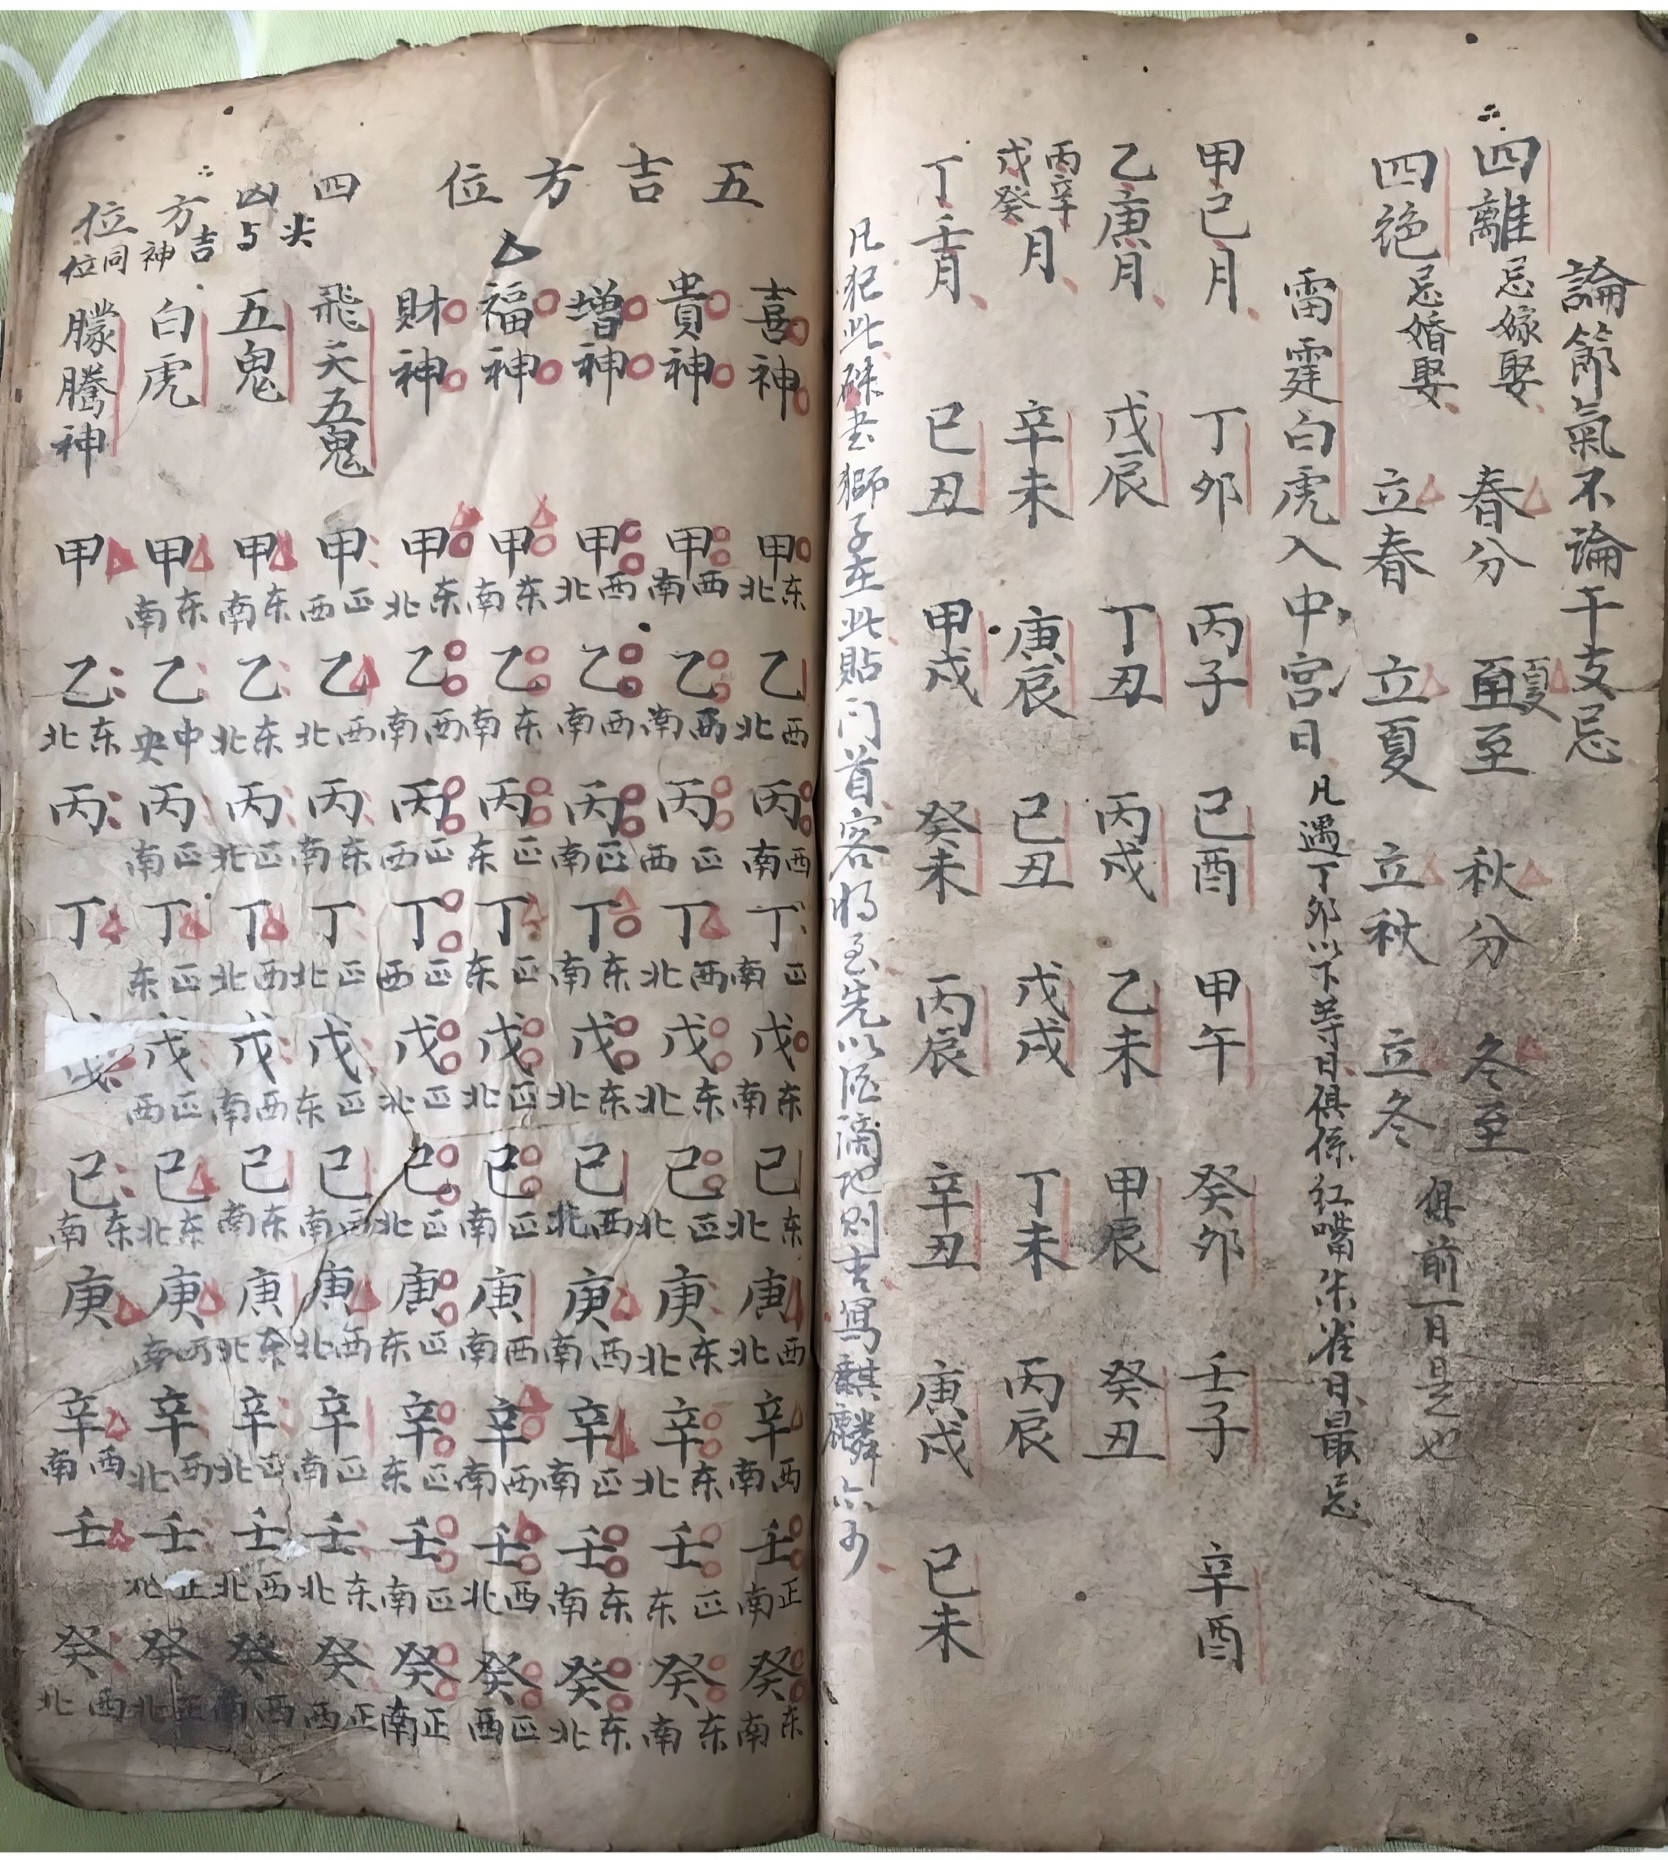 論節氣不論干支忌
四離忌嫁娶 春分 夏至 秋分 冬至
四绝忌婚娶 立春 立夏 立秋 立冬
俱前一日是也
雷霆白虎入中宮日 凡遇丁夘以下等日俱係红嘴朱雀日最忌
甲己月 丁夘 丙子 己酉 甲午 癸夘 壬子 辛酉
乙庚月 戊辰 丁丑 丙戌 乙未 甲辰 癸丑
丙辛戊癸月 辛未 庚辰 己丑 戊戌 丁未 丙辰
丁壬月 己丑 甲戌 癸未 丙辰 辛丑 庚戌 己未
凡犯此硃书獅子在此貼门首客将至先以酒滴地则吉寫麒麟亦可
五吉方位
喜神 甲东北 乙西北 丙西南 丁正南 戊东南 己东北 庚西北 辛西南 壬正南 癸东南
貴神 甲西南 乙西南 丙正西 丁西北 戊东北 己正北 庚东北 辛东北 壬正东 癸东南
增神 甲西北 乙西南 丙正南 丁东南 戊东北 己西北 庚西南 辛正南 壬东南 癸东北
福神 甲东南 乙东南 丙正东 丁正东 戊正北 己正南 庚西南 辛西南 壬西北 癸正西
財神 甲东北 乙西南 丙正西 丁正西 戊正北 己正北 庚正东 辛正东 壬正南 癸正南
四凶方位
尖与吉神同位
飛天五鬼 甲正西 乙西北 丙东南 丁正北 戊正东 己西南 庚西北 辛正南 壬东北 癸正西
五鬼 甲东南 乙东北 丙正北 丁西北 戊西南 己东南 庚东北 辛正北 壬西北 癸西南
白虎 甲东南 乙中央 丙正南 丁正东 戊正西 己东北 庚西南 辛西北 壬正北 癸正北
朦騰神 甲 乙东北 丙 丁 己东南 庚 辛西南 壬 癸西北